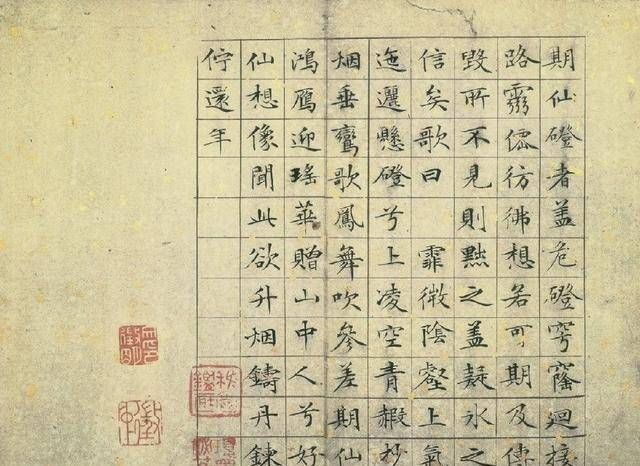 期仙磴者盖危磴穹窿迴
路霛僊彷彿想若可期及
毀所不見則黜之盖疑氷之
信矣歌曰 霏微陰壑上氣
迤邐懸磴兮上凌空青赮杪
烟垂鸞歌鳳舞吹參差期仙
鴻鴈迎瑤華贈山中人兮好
仙想像聞此欲升烟鑄丹鍊
佇還年